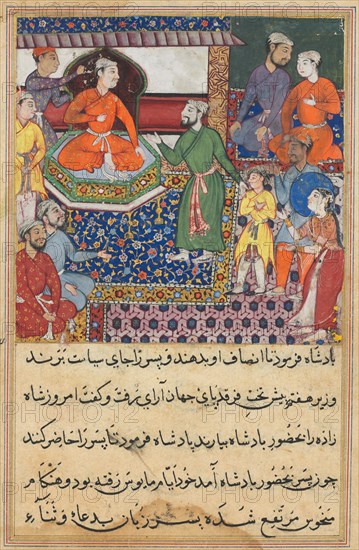 بادشاه فرمود تا انصاف او بدهند و پسر را جای سیاست برند
وزیر هفتم پیش تخت فرقد پای جهان آرای رفت و کفت امروز شاه
زاده را بحضور بادشاه بیارند بادشاه فرمود تا پسر را حاضر کنند
چون پسر بحضور بادشاه آمد خود ایام مایوس رفته بود و هنکام
منحوس مرتفع شده پسر زبان بدعا و ثنا